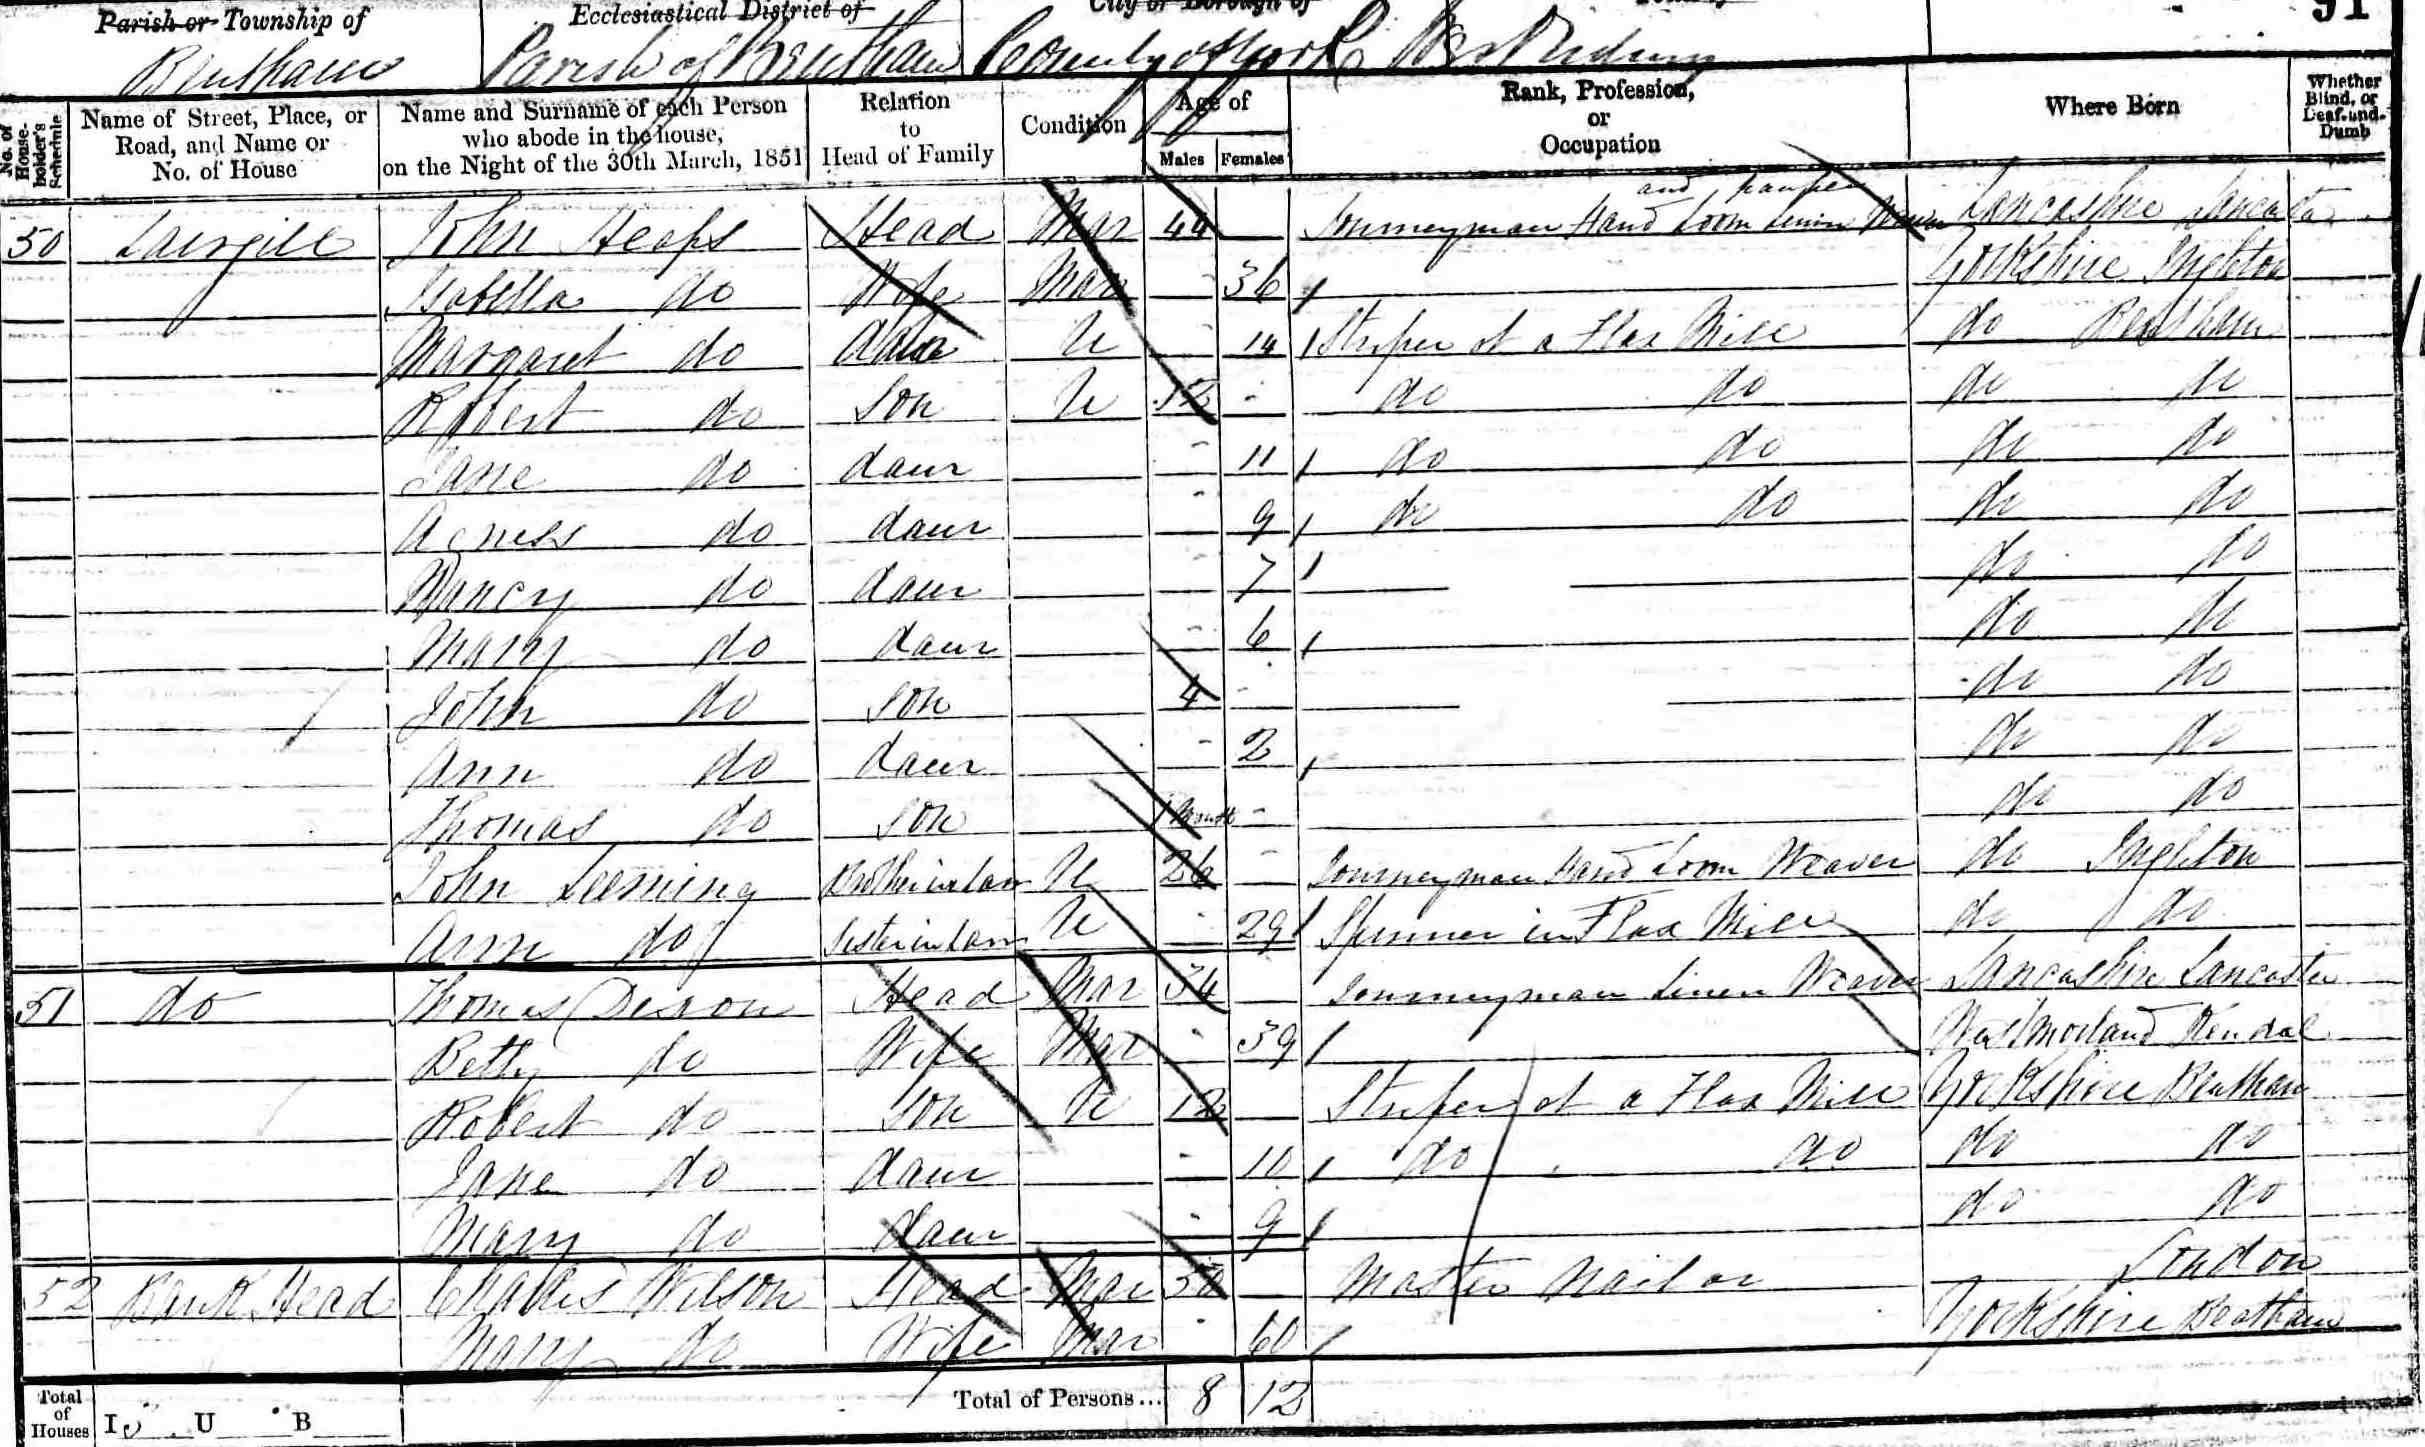 Parish or Township of
Ecclesiastical District of
City or Borough of
91
Bentham
Parish of Bentham
County of York West Riding
No. of House-holder's Schedule
Name of Street, Place, or Road, and Name or No. of House
Name and Surname of each Person who abode in the house, on the Night of the 30th March, 1851
Relation to Head of Family
Condition
Age of
Males
Females
Rank, Profession, or Occupation
Where Born
Whether Blind, or Deaf-and-Dumb
50 Lairgill John Heaps Head Mar 44 Journeyman Hand Loom Linen Weaver and pauper Lancashire Lancaster
Isabella do Wife Mar 36 Yorkshire Ingleton
Margaret do daur U 14 Striper at a Flax Mill do Bentham
Robert do Son U 12 do do do do
Jane do daur 11 do do do do
Agness do daur 9 do do do do
Nancy do daur 7 do do
Mary do daur 6 do do
John do Son 4 do do
Ann do daur 2 do do
Thomas do Son 1 Month do do
John Leeming Brother in law U 26 Journeyman Hand Loom Weaver do Ingleton
Ann do Sister in law U 29 Spinner in Flax Mill do do
51 do Thomas Dixon Head Mar 34 Journeyman Linen Weaver Lancashire Lancaster
Betty do Wife Mar 39 Westmorland Kendal
Robert do Son U 12 Striper at a Flax Mill Yorkshire Bentham
Jane do daur 10 do do do do
Mary do daur 9 do do
52 Bank Head Charles Wilson Head Mar Master Nailor London
Mary do Wife Mar 60 Yorkshire Bentham
Total of Houses I U B
Total of Persons... 8 12